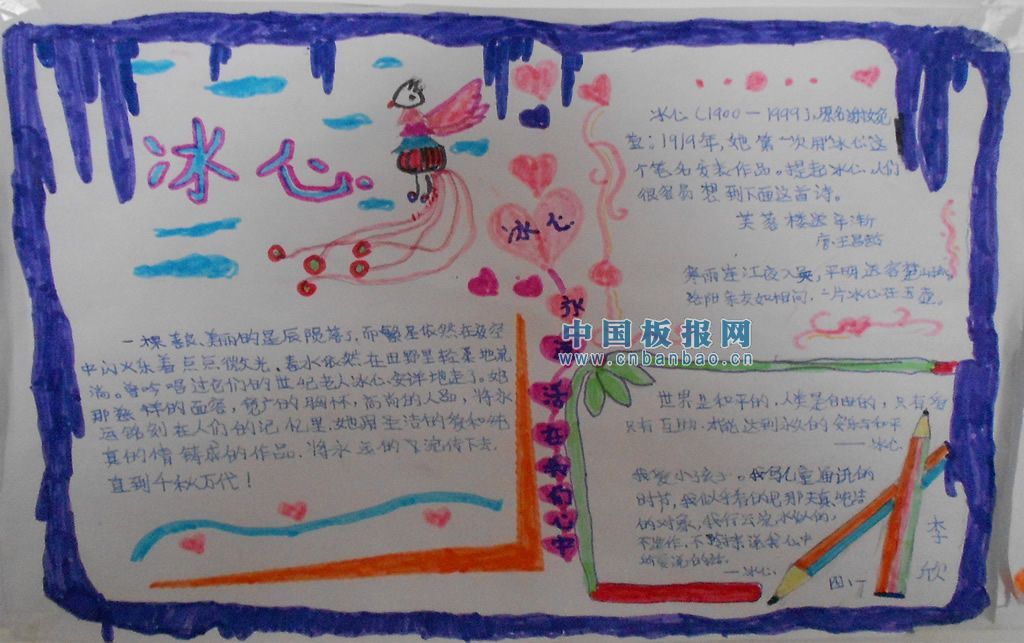 冰心
一颗美丽的星辰陨落了,而繁星依然在夜空
中闪烁着点点微光,春水依然在田野里轻柔地流
淌。曾吟唱过它们的世纪老人冰心,安详地走了。她
那慈祥的面容,宽广的胸怀,高尚的人品,将永
远铭刻在人们的记忆里。她用生活的爱和纯
真的情铸成的作品,将永远的流传下去,
直到千秋万代!
冰心
冰心(1900—1999),原名谢婉莹
1919年,她第一次用"冰心"这
个笔名发表作品。提起冰心,人们
很容易想到下面这首诗。
芙蓉楼送辛渐
唐·王昌龄
寒雨连江夜入吴,平明送客楚山孤。
洛阳亲友如相问,一片冰心在玉壶。
中国板报网
www.cnbanbao.cn
世界是和平的,人类是自由的,只有爱
只有互助,才能达到永久的安乐与和平
——冰心
我爱小孩子。我写儿童通讯的
时节,我似乎看的见那天真纯洁
的对象,我行云流水似的,
不造作,不矜持,说我心中
所要说的话。
——冰心
李欣
四、丁